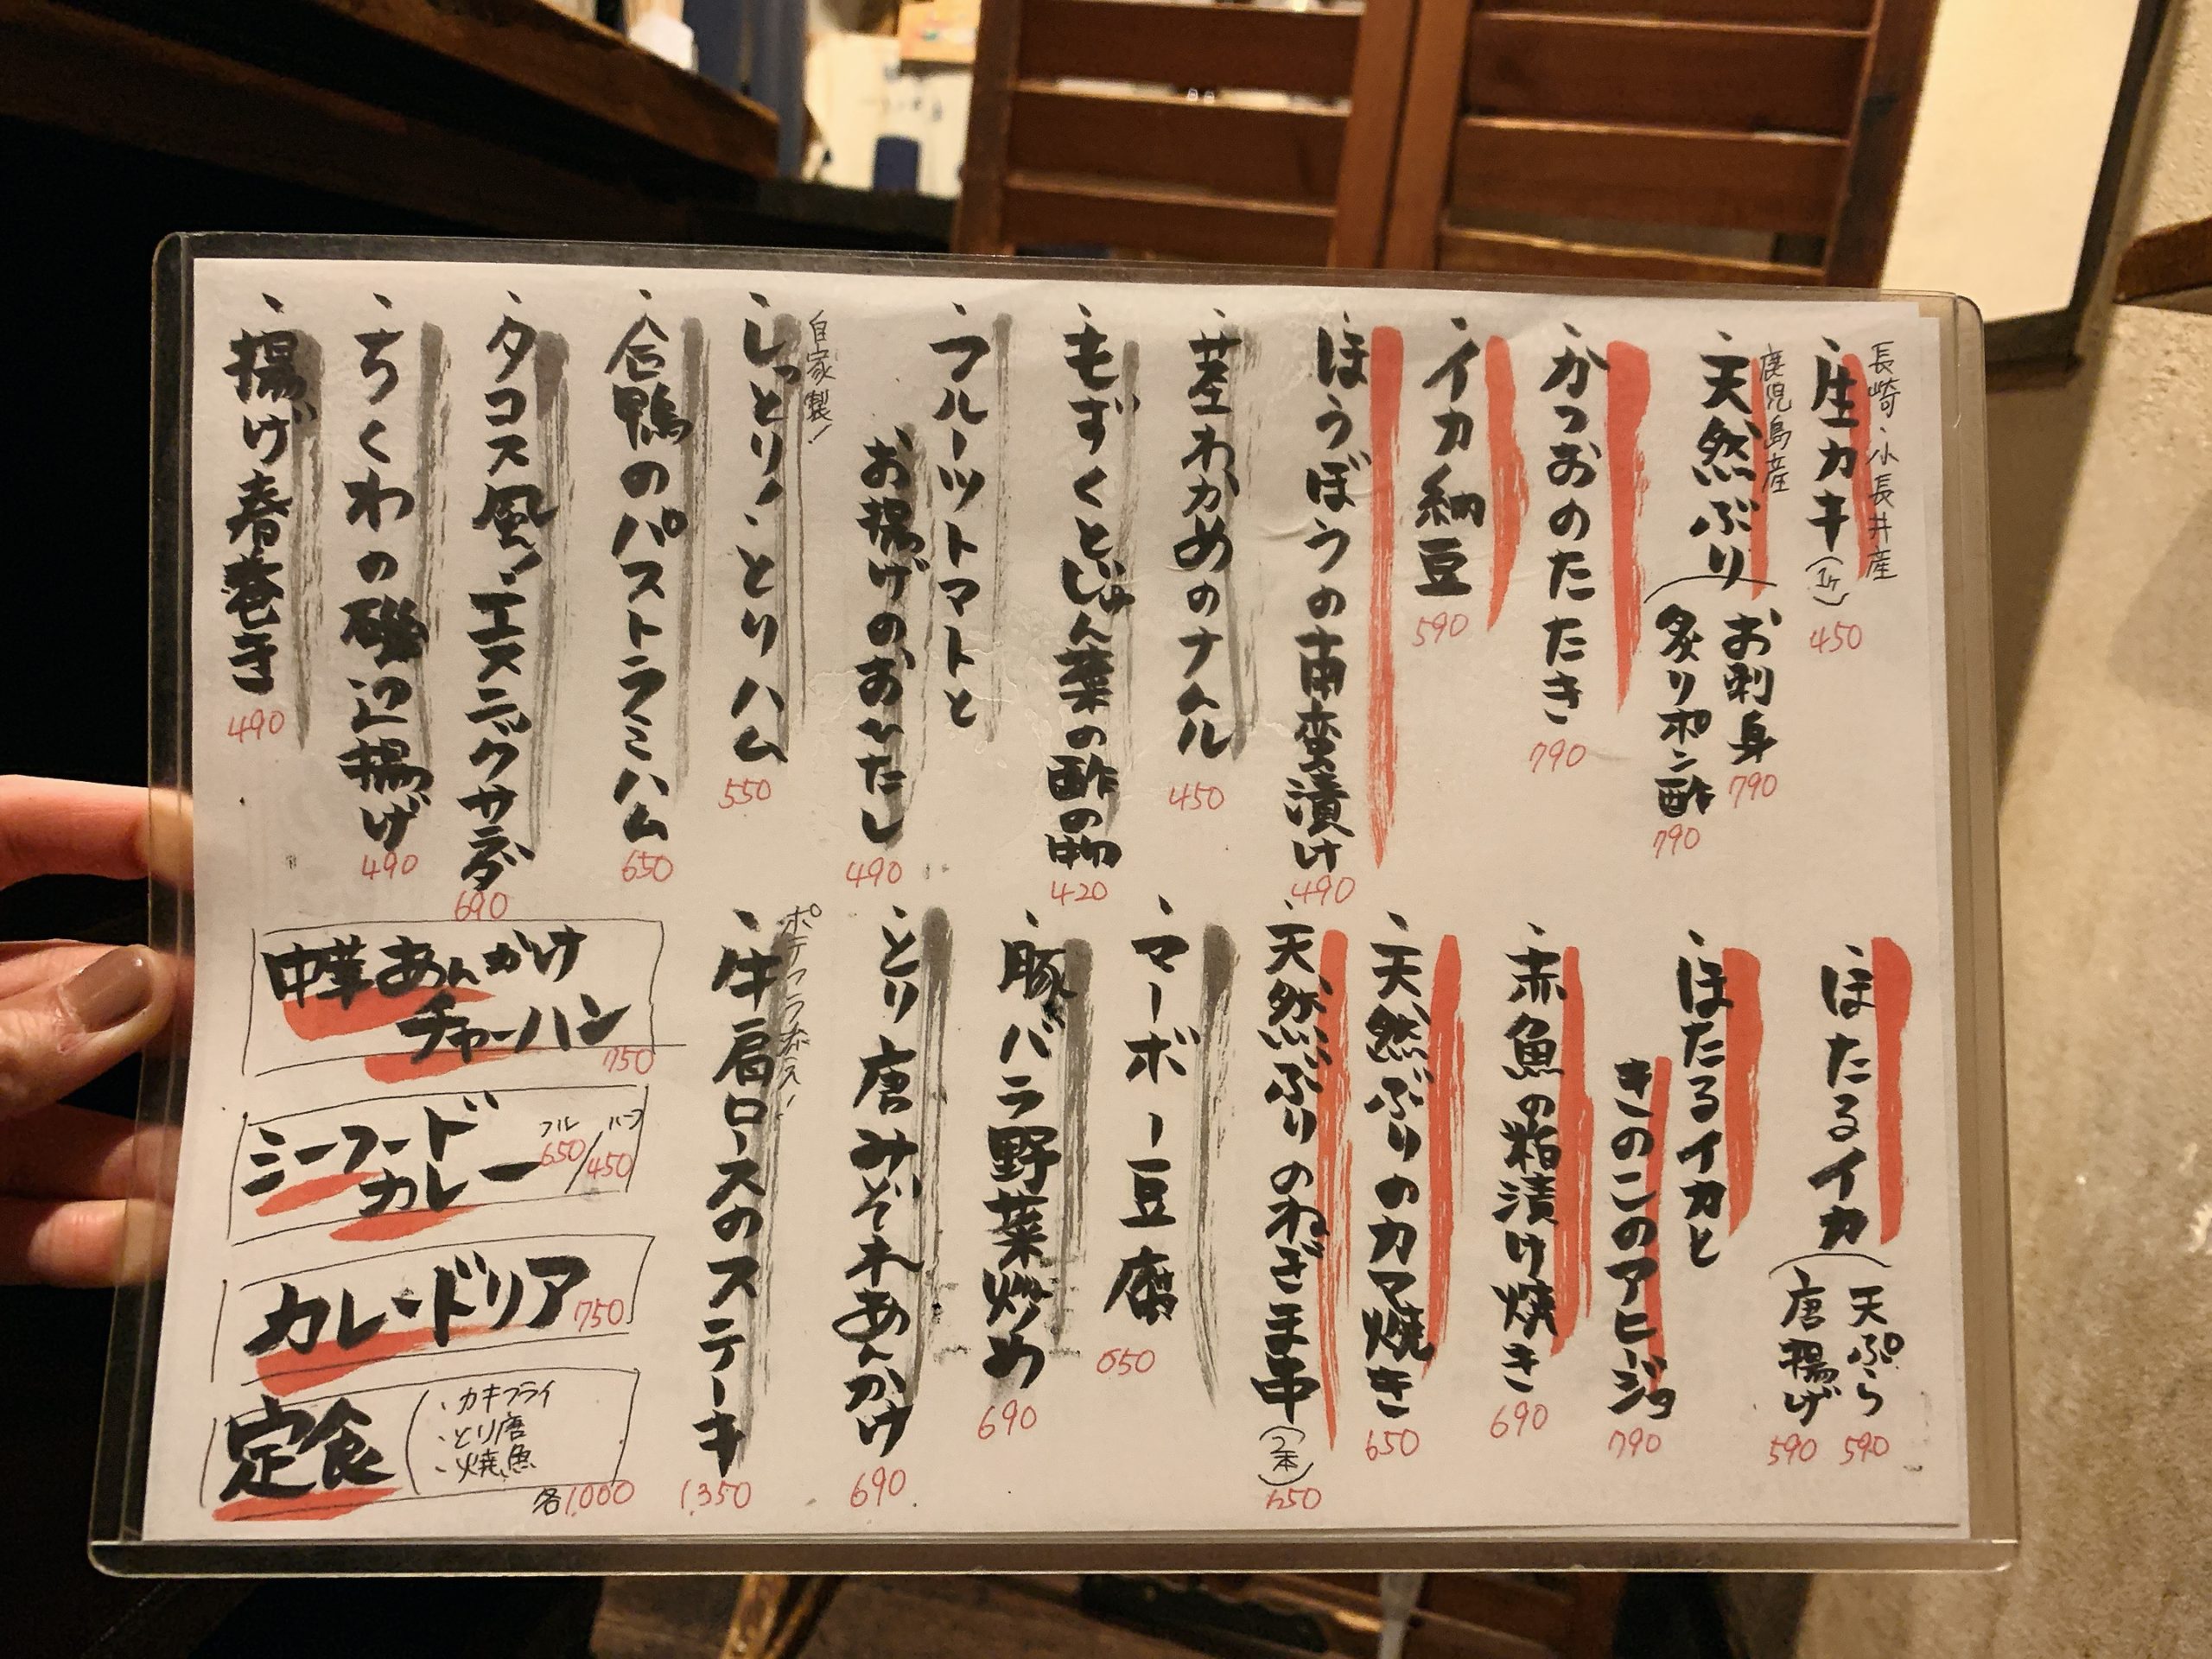 長崎・小長井産
、生カキ(1ケ) 450
鹿児島産
、天然ぶり
お刺身 790
炙りポン酢 790
、かつおのたたき 790
、イカ納豆 590
、ほうぼうの南蛮漬け 490
、茎わかめのナムル 450
、もずくとじゅん菜の酢の物 420
、フルーツトマトと
お揚げのおひたし 490
自家製!
、しっとり!とりハム 550
、合鴨のパストラミハム 650
、タコス風!エスニックサラダ 690
、ちくわの磯辺揚げ 490
、揚げ春巻き 490
、ほたるイカ
天ぷら 590
唐揚げ 590
、ほたるイカと
きのこのアヒージョ 790
、赤魚の粕漬け焼き 690
、天然ぶりのカマ焼き 650
、天然ぶりのねぎま串(2本) 650
、マーボー豆腐 650
、豚バラ野菜炒め 690
、とり唐みぞれあんかけ 690
ポテフラガエス!
、牛肩ロースのステーキ 1,350
中華あんかけ
チャーハン 750
シーフード
カレー
フル 650/ハーフ 450
カレードリア 750
定食
・カキフライ
・とり唐
・焼魚
各1,000